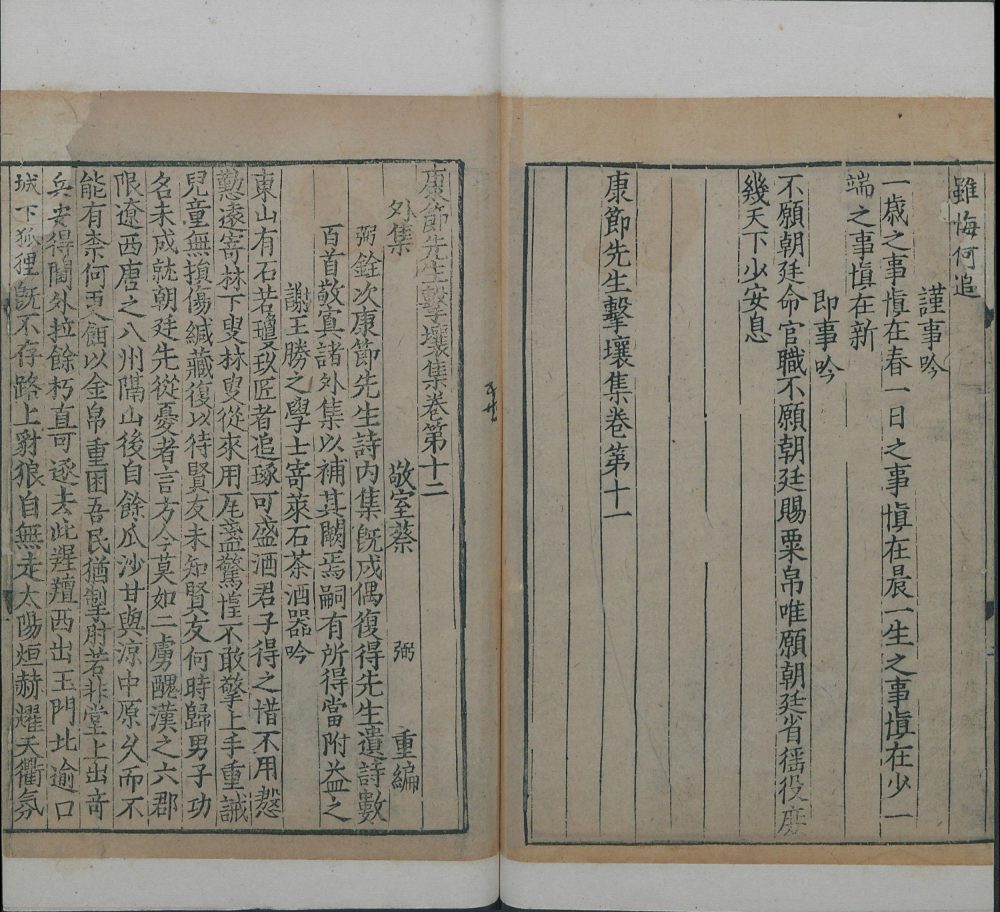 雖悔何追
謹事吟
一歲之事愼在春一日之事愼在晨一生之事愼在少一
端之事愼在新
即事吟
不願朝廷命官職不願朝廷賜粟帛唯願朝廷省徭役庶
幾天下少安息
康節先生擊壤集卷第十一
康節先生擊壤集卷第十二
外集 敬室蔡 弼 重編
弼銓次康節先生詩内集旣成偶復得先生遺詩數
百首敬寘諸外集以補其闕焉嗣有所得當附益之
謝王勝之學士寄萊石茶酒器吟
東山有石若瓊玖匠者追琢可盛酒君子得之惜不用慇
懃遠寄林下叟林叟從來用瓦盞驚惶不敢擎上手重誡
兒童無損傷緘藏復以待賢友未知賢友何時歸男子功
名未成就朝廷先從憂者言方今莫如二虜醜漢之六郡
限遼西唐之八州隔山後自餘瓜沙甘與涼中原久而不
能有柰何更餌以金帛重困吾民猶掣肘若非堂上出竒
兵安得閫外拉餘朽直可逐去此腥羶西出玉門北逾口
城下狐狸旣不存路上豺狼自無走太陽烜赫耀天衢氛